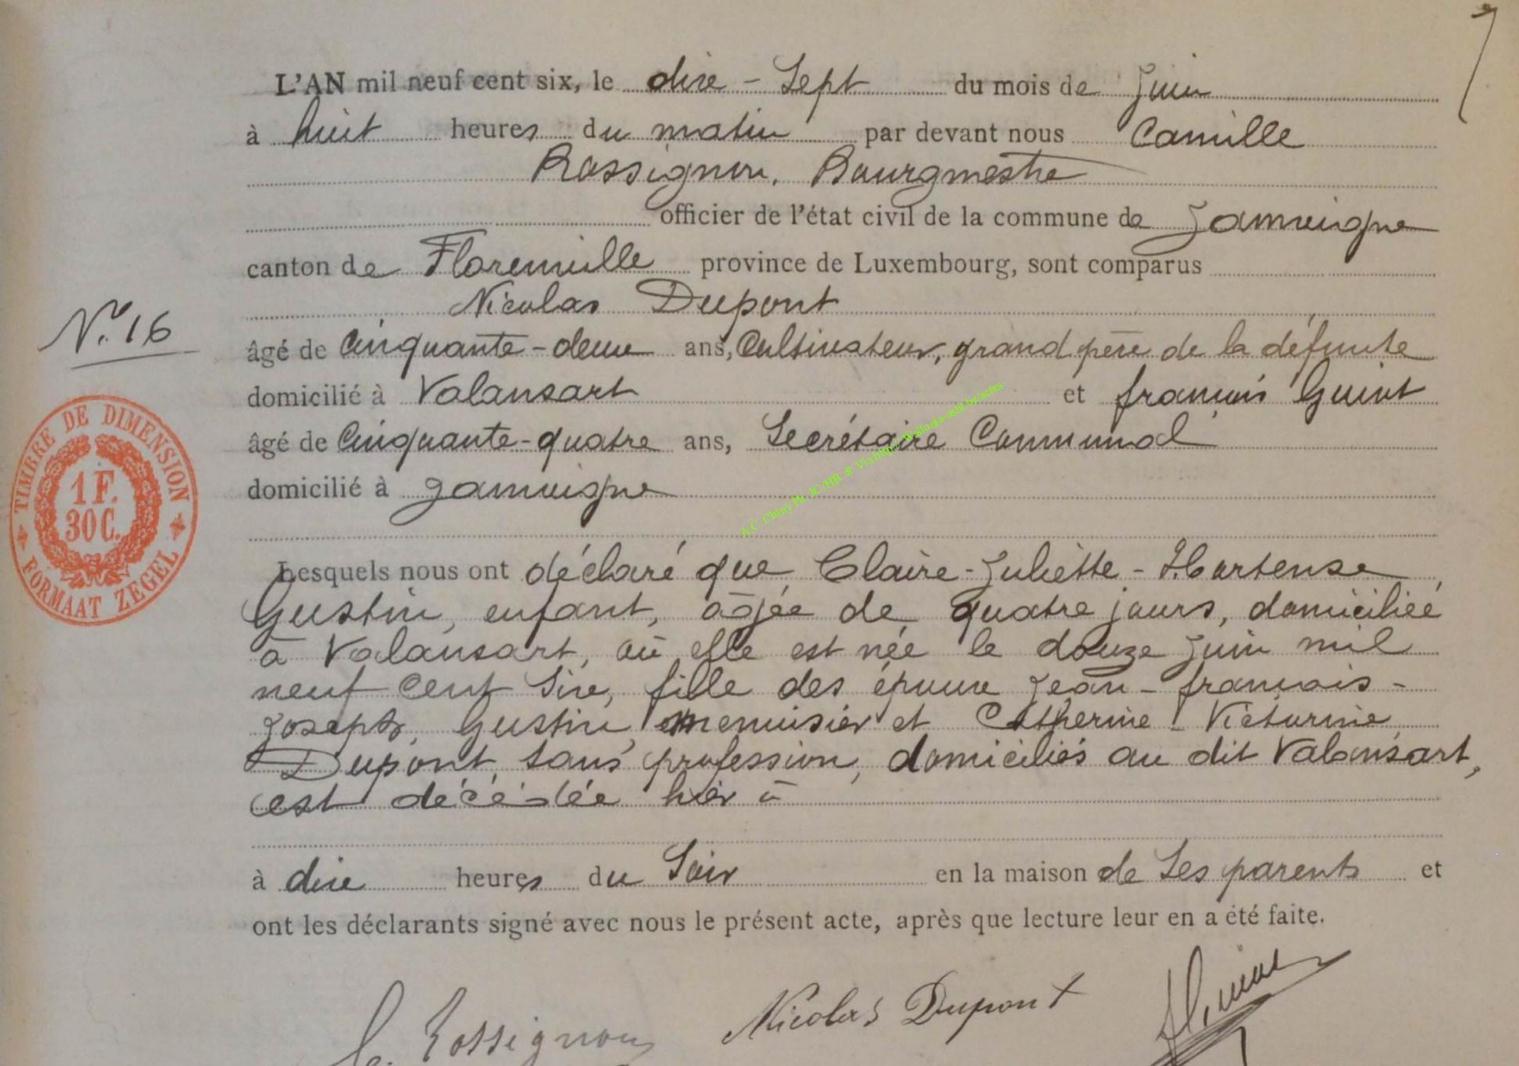 L'AN mil neuf cent six, le dix-sept du mois de Juin
à huit heures du matin par devant nous Camille
Rossignon, Bourgmestre
officier de l'état civil de la commune de Jamoigne
canton de Florenville province de Luxembourg, sont comparus
Nicolas Dupont
N° 16
âgé de cinquante-deux ans, Cultivateur, grand père de la défunte
domicilié à Valansart et françois Guiot
âgé de cinquante-quatre ans, Secrétaire Communal
domicilié à Jamoigne
TIMBRE DE DIMENSION
1 F.
30 C.
FORMAAT ZEGEL
Lesquels nous ont déclaré que Claire-Juliette-Hortense
Gustin, enfant, âgée de quatre jours, domiciliée
à Valansart, où elle est née le douze Juin mil
neuf cent six, fille des époux Jean-françois-
Joseph Gustin, menuisier et Catherine Victorine
Dupont, sans profession, domiciliés au dit Valansart,
est décédée hier à
à dix heures du soir en la maison de ses parents et
ont les déclarants signé avec nous le présent acte, après que lecture leur en a été faite.
C. Rossignon Nicolas Dupont